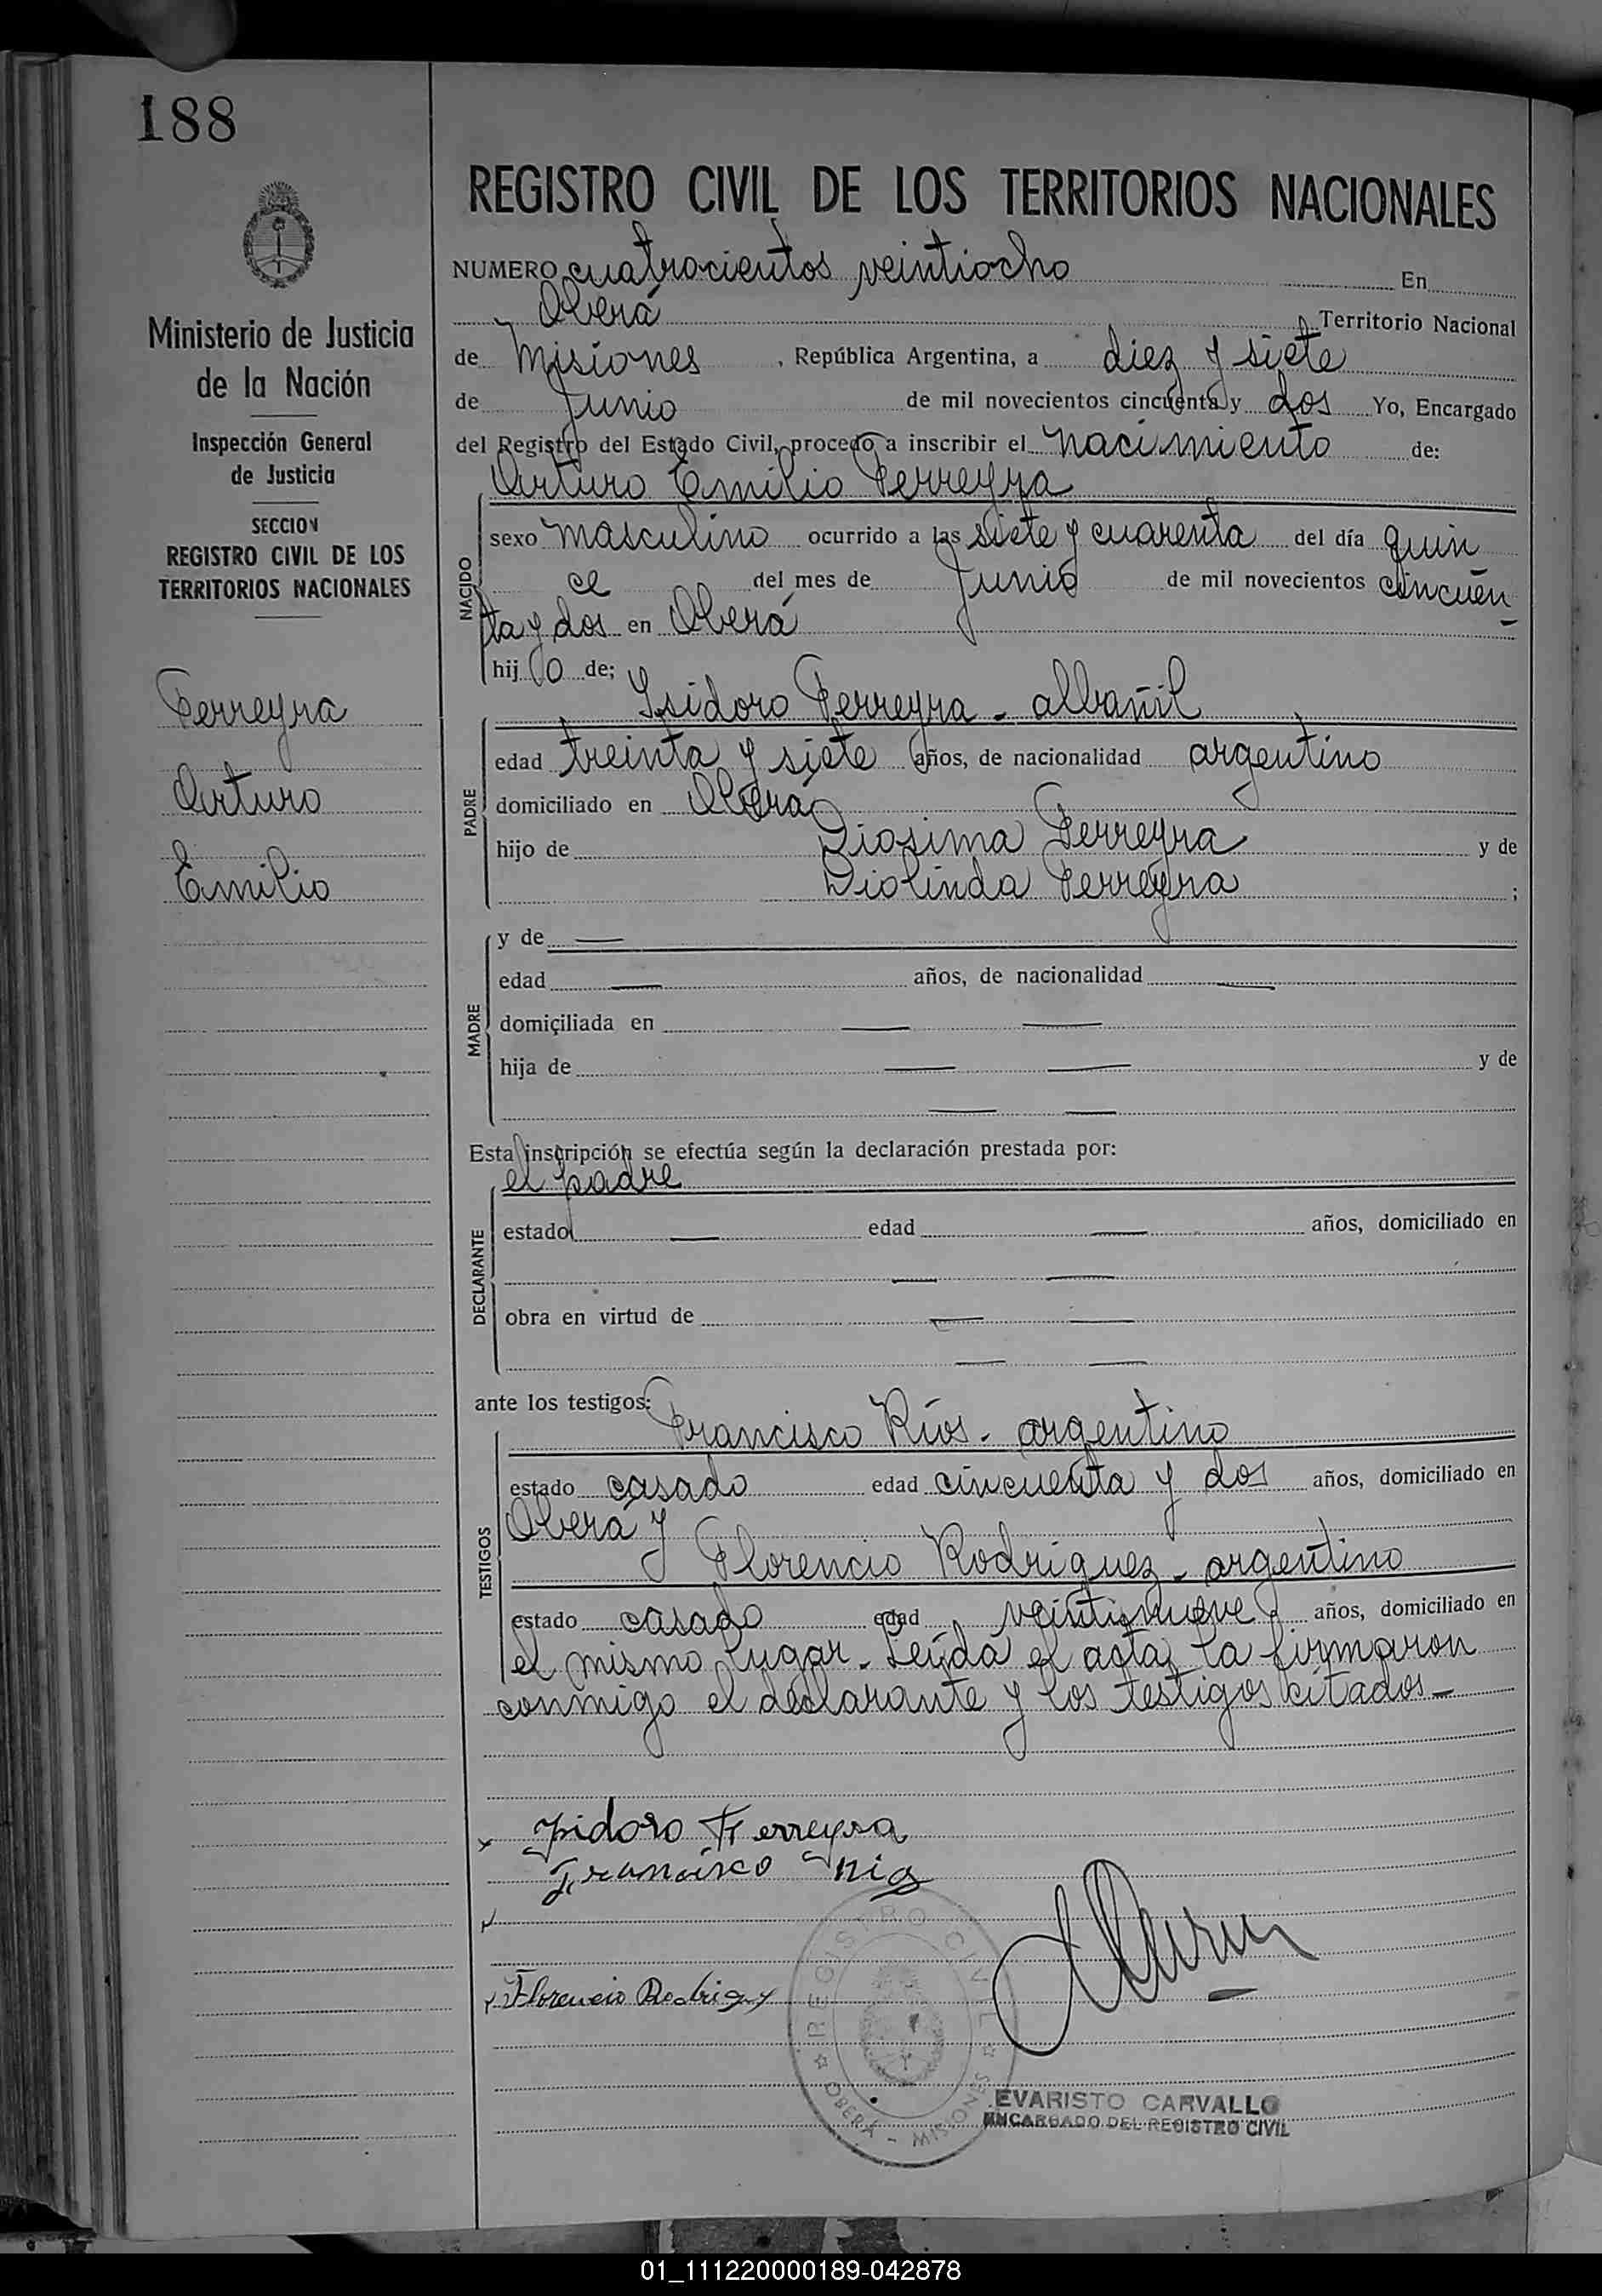 188
Ministerio de Justicia
de la Nación
Inspección General
de Justicia
SECCION
REGISTRO CIVIL DE LOS
TERRITORIOS NACIONALES
Ferreyra
Arturo
Emilio
REGISTRO CIVIL DE LOS TERRITORIOS NACIONALES
NUMERO cuatrocientos veintiocho En
Oberá Territorio Nacional
de Misiones , República Argentina, a diez y siete
de Junio de mil novecientos cincuenta y dos Yo, Encargado
del Registro del Estado Civil, procedo a inscribir el nacimiento de:
Arturo Emilio Ferreyra
NACIDO
sexo masculino ocurrido a las siete y cuarenta del día quin
ce del mes de Junio de mil novecientos cincuen
ta y dos en Oberá
hij o de;
Isidoro Ferreyra - albañil
PADRE
edad treinta y siete años, de nacionalidad argentino
domiciliado en Oberá
hijo de Diosima Ferreyra y de
Diolinda Ferreyra ;
MADRE
y de —
edad — años, de nacionalidad —
domiciliada en — —
hija de — — y de
— —
Esta inscripción se efectúa según la declaración prestada por:
el padre
DECLARANTE
estado — edad — años, domiciliado en
— —
obra en virtud de — —
— —
ante los testigos:
Francisco Ríos - argentino
TESTIGOS
estado casado edad cincuenta y dos años, domiciliado en
Oberá y
Florencio Rodriguez - argentino
estado casado edad veintinueve años, domiciliado en
el mismo lugar. Leída el acta, la firmaron
conmigo el declarante y los testigos citados -
x Isidoro Ferreyra
Francisco
x Florencio
REGISTRO CIVIL
OBERÁ - MISIONES
EVARISTO CARVALLO
ENCARGADO DEL REGISTRO CIVIL
01_111220000189-042878